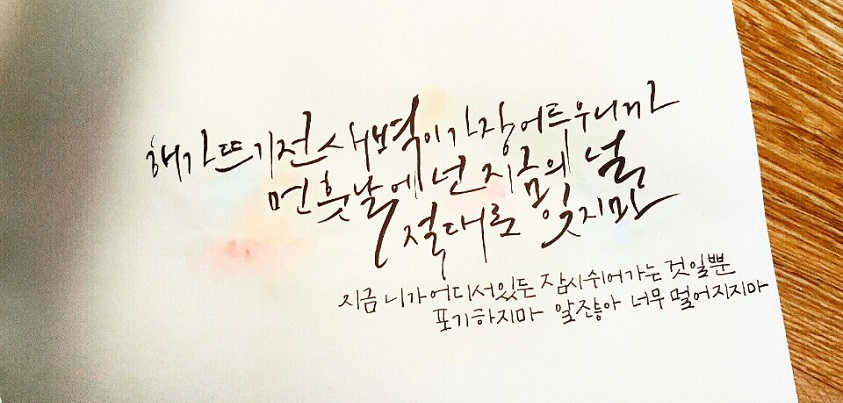 해가뜨기전새벽이가장어두우니까
먼훗날에넌지금의널
절대로 잊지마
지금 니가어디서있든 잠시쉬어가는것일뿐
포기하지마 알잖아 너무멀어지지마